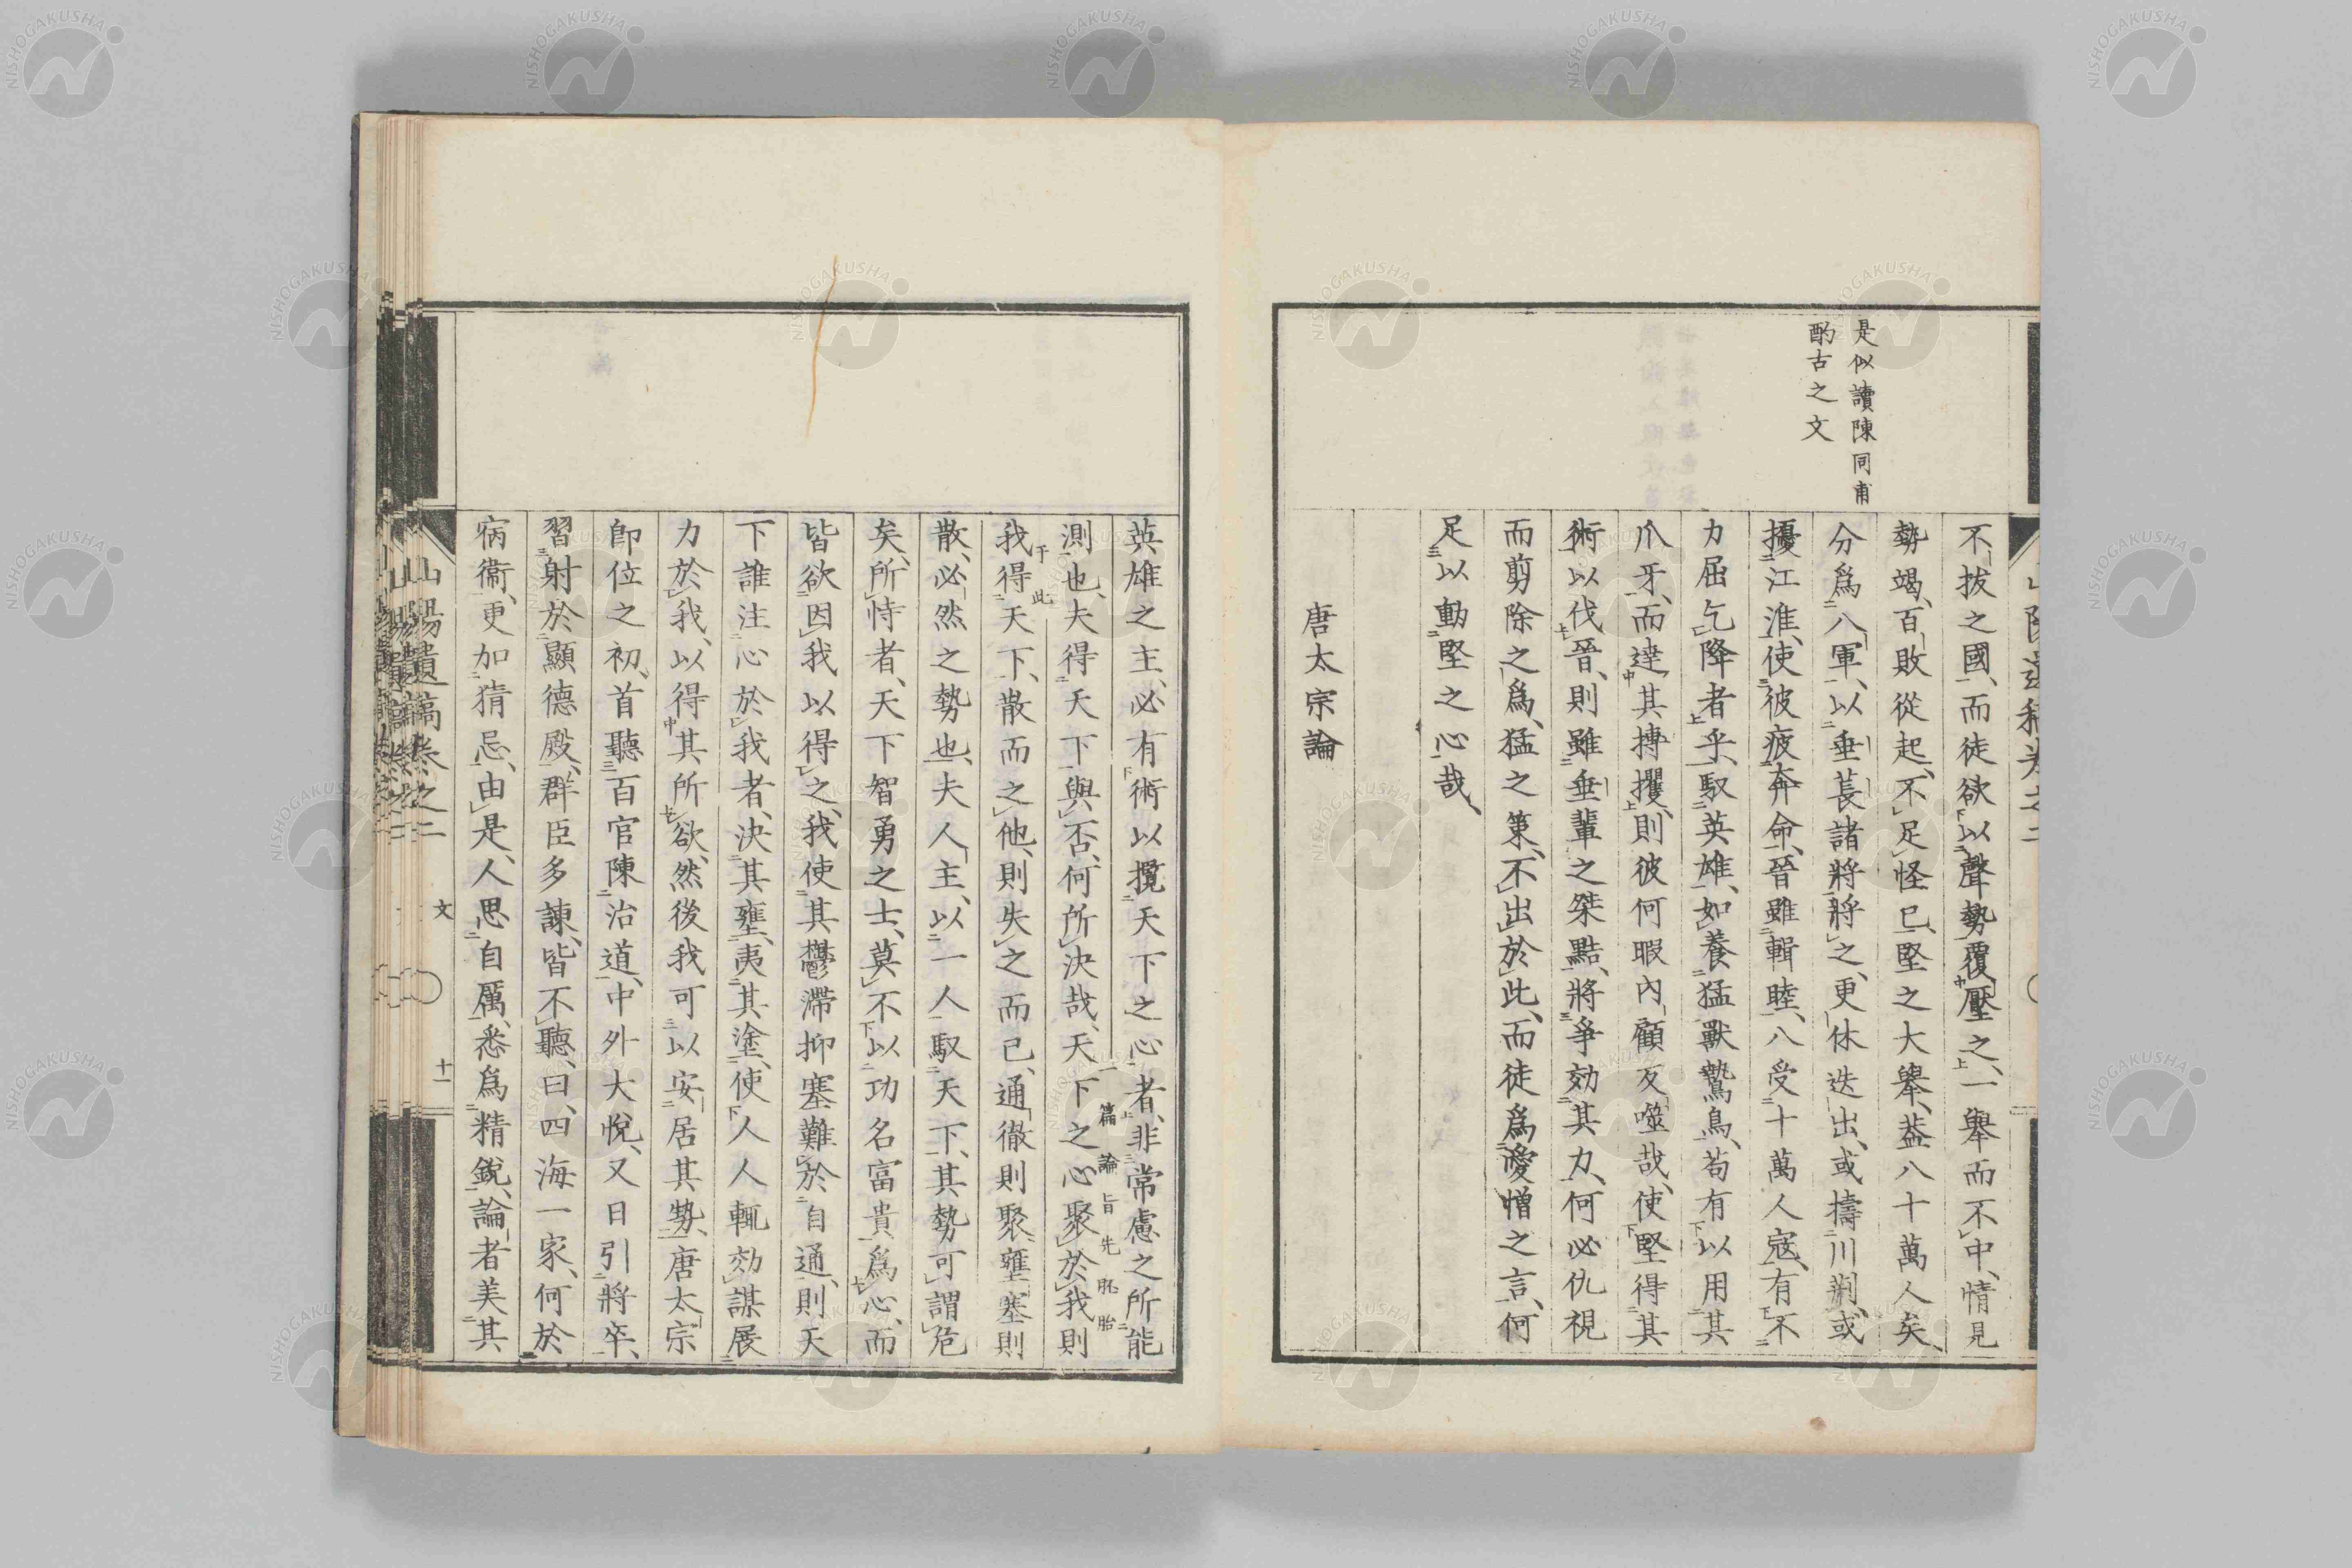 是似讀陳同甫
酌古之文
不拔之國、而徒欲以聲勢覆壓之、一舉而不中、情見
勢竭、百敗從起、不足怪已、堅之大舉、蓋八十萬人矣、
分爲八軍、以垂萇諸將將之、更休迭出、或擣川荊、或
擾江淮、使彼疲奔命、晉雖輯睦、八受十萬人寇、有不
力屈乞降者乎、馭英雄、如養猛獸鷙鳥、苟有以用其
爪牙、而達其摶攫、則彼何暇內顧反噬哉、使堅得其
術以伐晉、則雖垂輩之桀黠、將爭効其力、何必仇視
而剪除之爲、猛之策、不出於此、而徒爲愛憎之言、何
足以動堅之心哉、
唐太宗論
英雄之主、必有術以攬天下之心者、非常慮之所能
測也、夫得天下與否、何所決哉、天下之心聚於我則
一篇論旨先胚胎
于此
我得天下、散而之他、則失之而已、通徹則聚、壅塞則
散、必然之勢也、夫人主、以一人馭天下、其勢可謂危
矣、所恃者、天下智勇之士、莫不以功名富貴爲心、而
皆欲因我以得之、我使其鬱滯抑塞難於自通、則天
下誰注心於我者、決其壅、夷其塗、使人人輒効謀展
力於我、以得其所欲、然後我可以安居其勢、唐太宗
卽位之初、首聽百官陳治道、中外大悅、又日引將卒、
習射於顯德殿、群臣多諫、皆不聽、曰、四海一家、何於
病衞、更加猜忌、由是、人思自厲、悉爲精銳、論者美其
山陽遺稿卷之二
文
十一